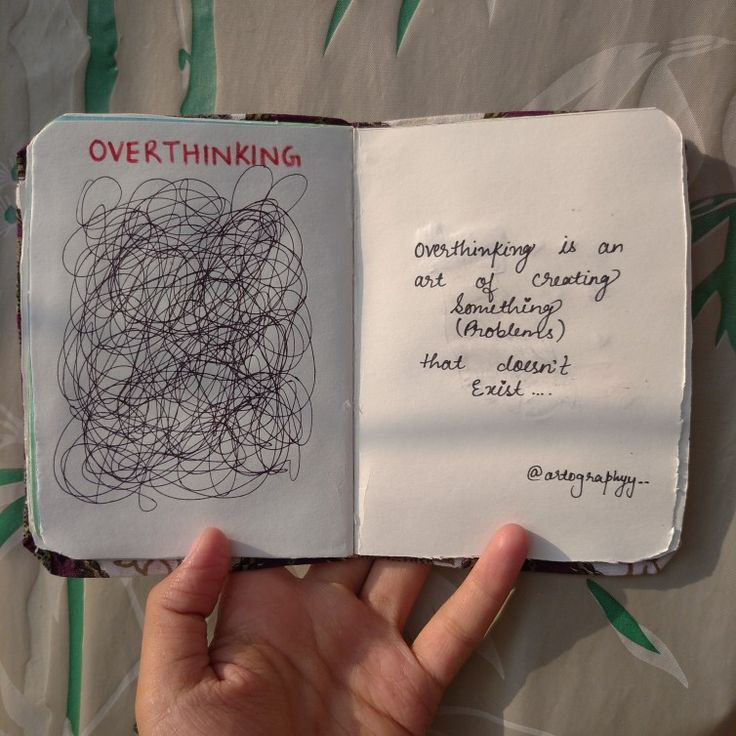 OVERTHINKING
Overthinking is an
art of creating
Something
(Problems)
that doesn't
Exist ....
@artographyy--